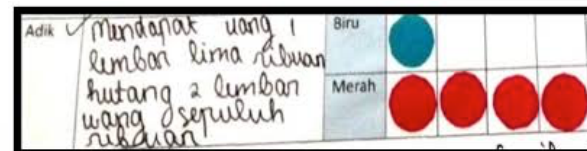 Adik ✓ mendapat uang 1
lembar lima ribuan
hutang 2 lembar
uang sepuluh
ribuan
Biru
Merah